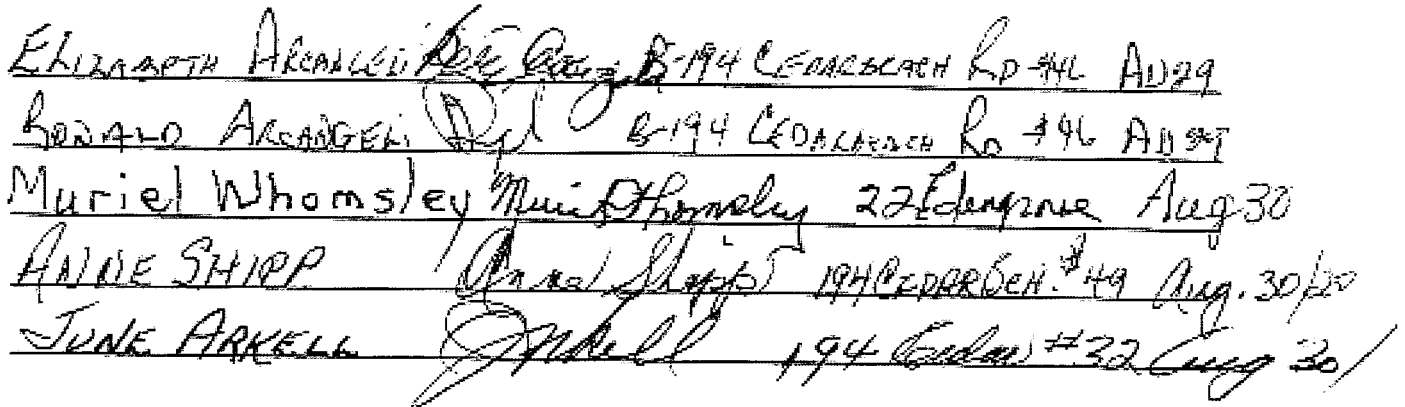 ELIZABETH ARCANGELI B-194 CEDARBEACH RD #46 AU29
RONALD ARCANGELI B-194 CEDARBEACH RD #46 AU29
Muriel Whomsley Muriel Whomsley 22 Edengrove Aug 30
ANNE SHIPP Anne Shipp 194 CEDAR BCH. #49 Aug. 30/20
JUNE ARKELL J Arkell 194 Cedar #32 Aug 30/